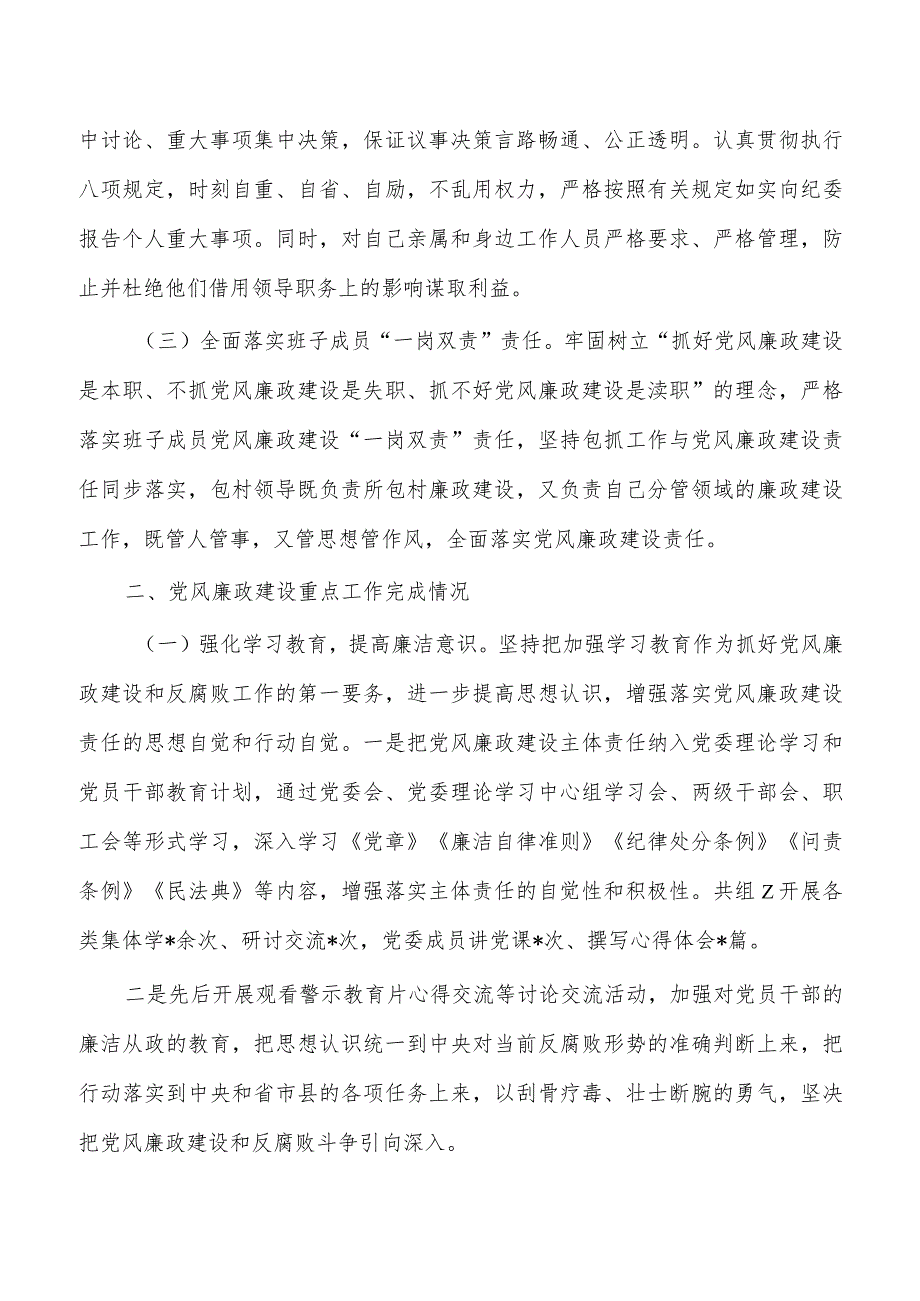 中讨论、重大事项集中决策，保证议事决策言路畅通、公正透明。认真贯彻执行
八项规定，时刻自重、自省、自励，不乱用权力，严格按照有关规定如实向纪委
报告个人重大事项。同时，对自己亲属和身边工作人员严格要求、严格管理，防
止并杜绝他们借用领导职务上的影响谋取利益。
（三）全面落实班子成员“一岗双责”责任。牢固树立“抓好党风廉政建设
是本职、不抓党风廉政建设是失职、抓不好党风廉政建设是渎职”的理念，严格
落实班子成员党风廉政建设“一岗双责”责任，坚持包抓工作与党风廉政建设责
任同步落实，包村领导既负责所包村廉政建设，又负责自己分管领域的廉政建设
工作，既管人管事，又管思想管作风，全面落实党风廉政建设责任。
二、党风廉政建设重点工作完成情况
（一）强化学习教育，提高廉洁意识。坚持把加强学习教育作为抓好党风廉
政建设和反腐败工作的第一要务，进一步提高思想认识，增强落实党风廉政建设
责任的思想自觉和行动自觉。一是把党风廉政建设主体责任纳入党委理论学习和
党员干部教育计划，通过党委会、党委理论学习中心组学习会、两级干部会、职
工会等形式学习，深入学习《党章》《廉洁自律准则》《纪律处分条例》《问责
条例》《民法典》等内容，增强落实主体责任的自觉性和积极性。共组 Z 开展各
类集体学*余次、研讨交流*次，党委成员讲党课*次、撰写心得体会*篇。
二是先后开展观看警示教育片心得交流等讨论交流活动，加强对党员干部的
廉洁从政的教育，把思想认识统一到中央对当前反腐败形势的准确判断上来，把
行动落实到中央和省市县的各项任务上来，以刮骨疗毒、壮士断腕的勇气，坚决
把党风廉政建设和反腐败斗争引向深入。